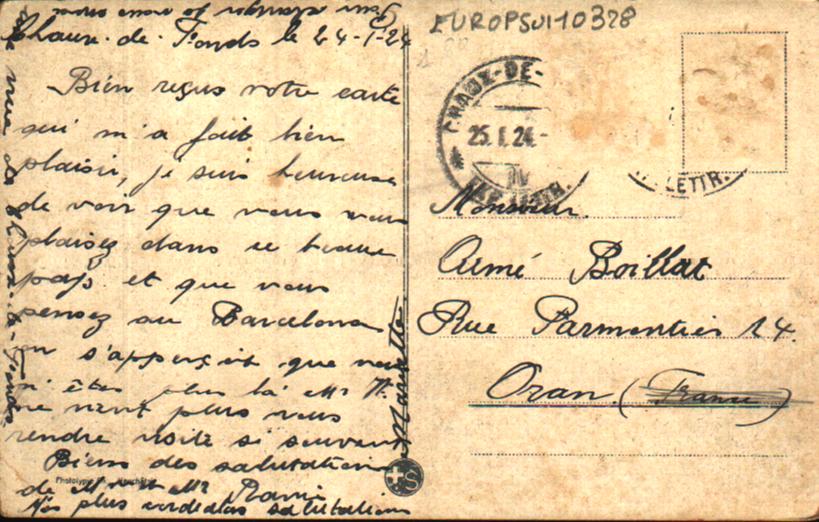 EUROPSUI10328
Chaux-de-Fonds le 24-1-24
Bien reçus votre carte
qui m'a fait bien
plaisir, je suis heureuse
de voir que vous vous
plaisez dans ce beau
pays et que vous
pensez au Barcelona
on s'apperçoit que vous
n'êtes plus là Mr W.
ne vient plus vous
rendre visite si souvent
Biens des salutations
de Mme et Mr
Nos plus cordiales salutations
Marcelle
vue de Chaux-de-Fonds
CHAUX-DE-
25.I.24
IV
LETTR.
Monsieur.
Aimé Boillat
Rue Parmentier 24.
Oran. (France)
S